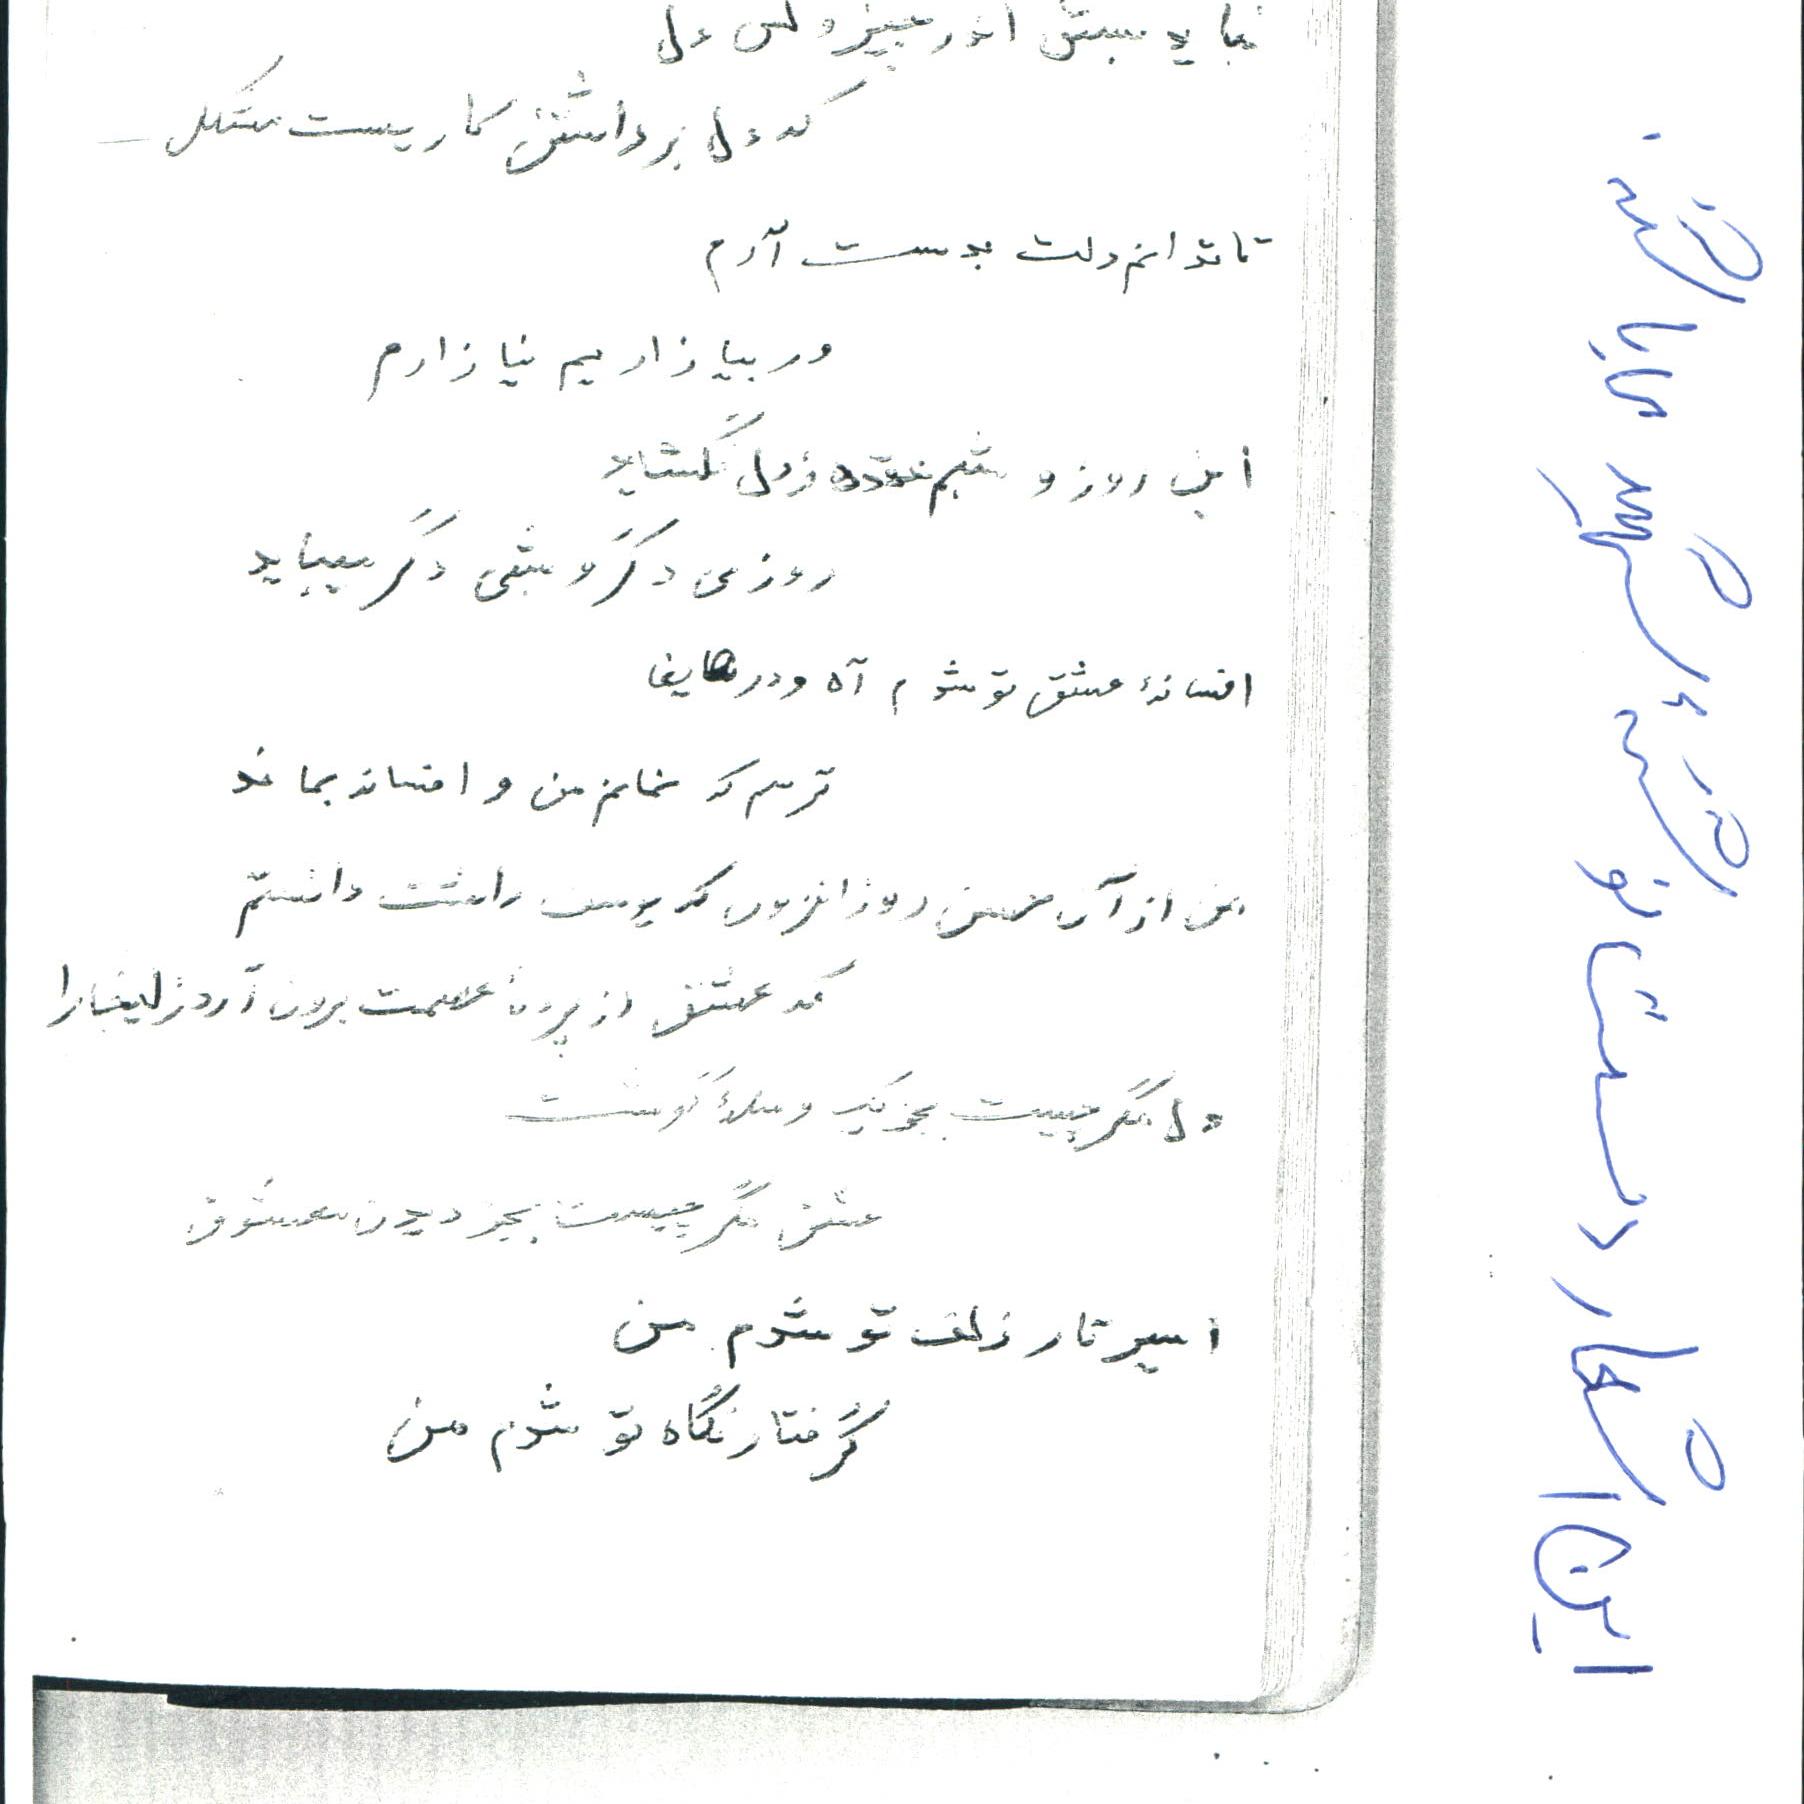 نباید بستن اندر چیز و کس دل
که دل برداشتن کاریست مشکل
تا توانم دلت بدست آرم
ور بیازاریم نیازارم
این روز و شبم عقده ز دل نگشاید
روزی دگر و شبی دگر میباید
افسانهٔ عشق تو شدم آه و دریغا
ترسم که نمانم من و افسانه بماند
من از آن حسن روز افزون که یوسف داشت دانستم
که عشق از پردهٔ عصمت برون آرد زلیخا را
دل مگر چیست بجز یک وصلهٔ گوشت
عشق مگر چیست بجز دیدن معشوق
اسیر تار زلف تو شدم من
گرفتار نگاه تو شدم من
این اشعار دست نو